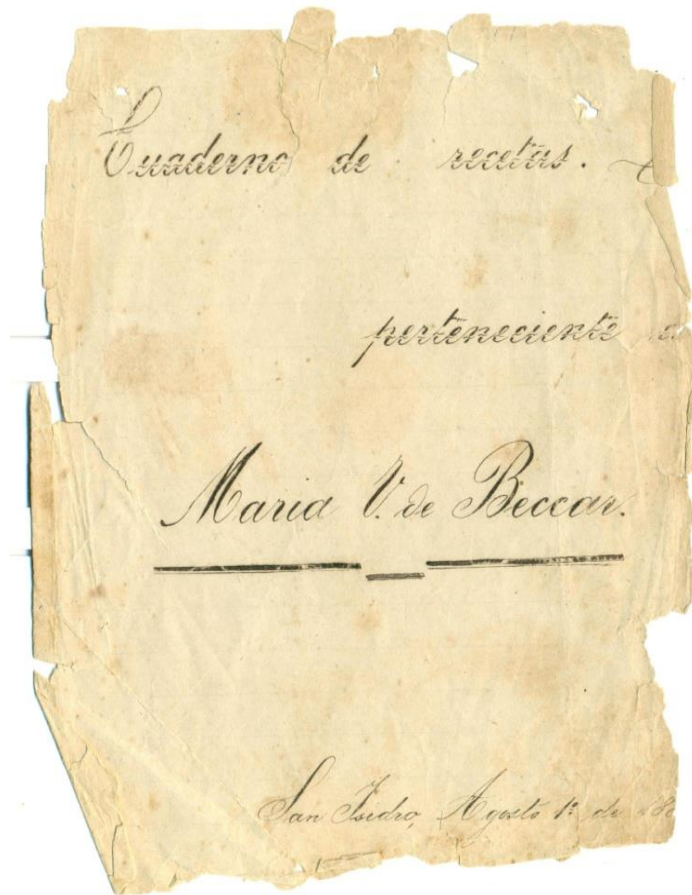 Cuaderno de recetas.
perteneciente a
Maria V. de Beccar.
San Isidro, Agosto 1º de 188